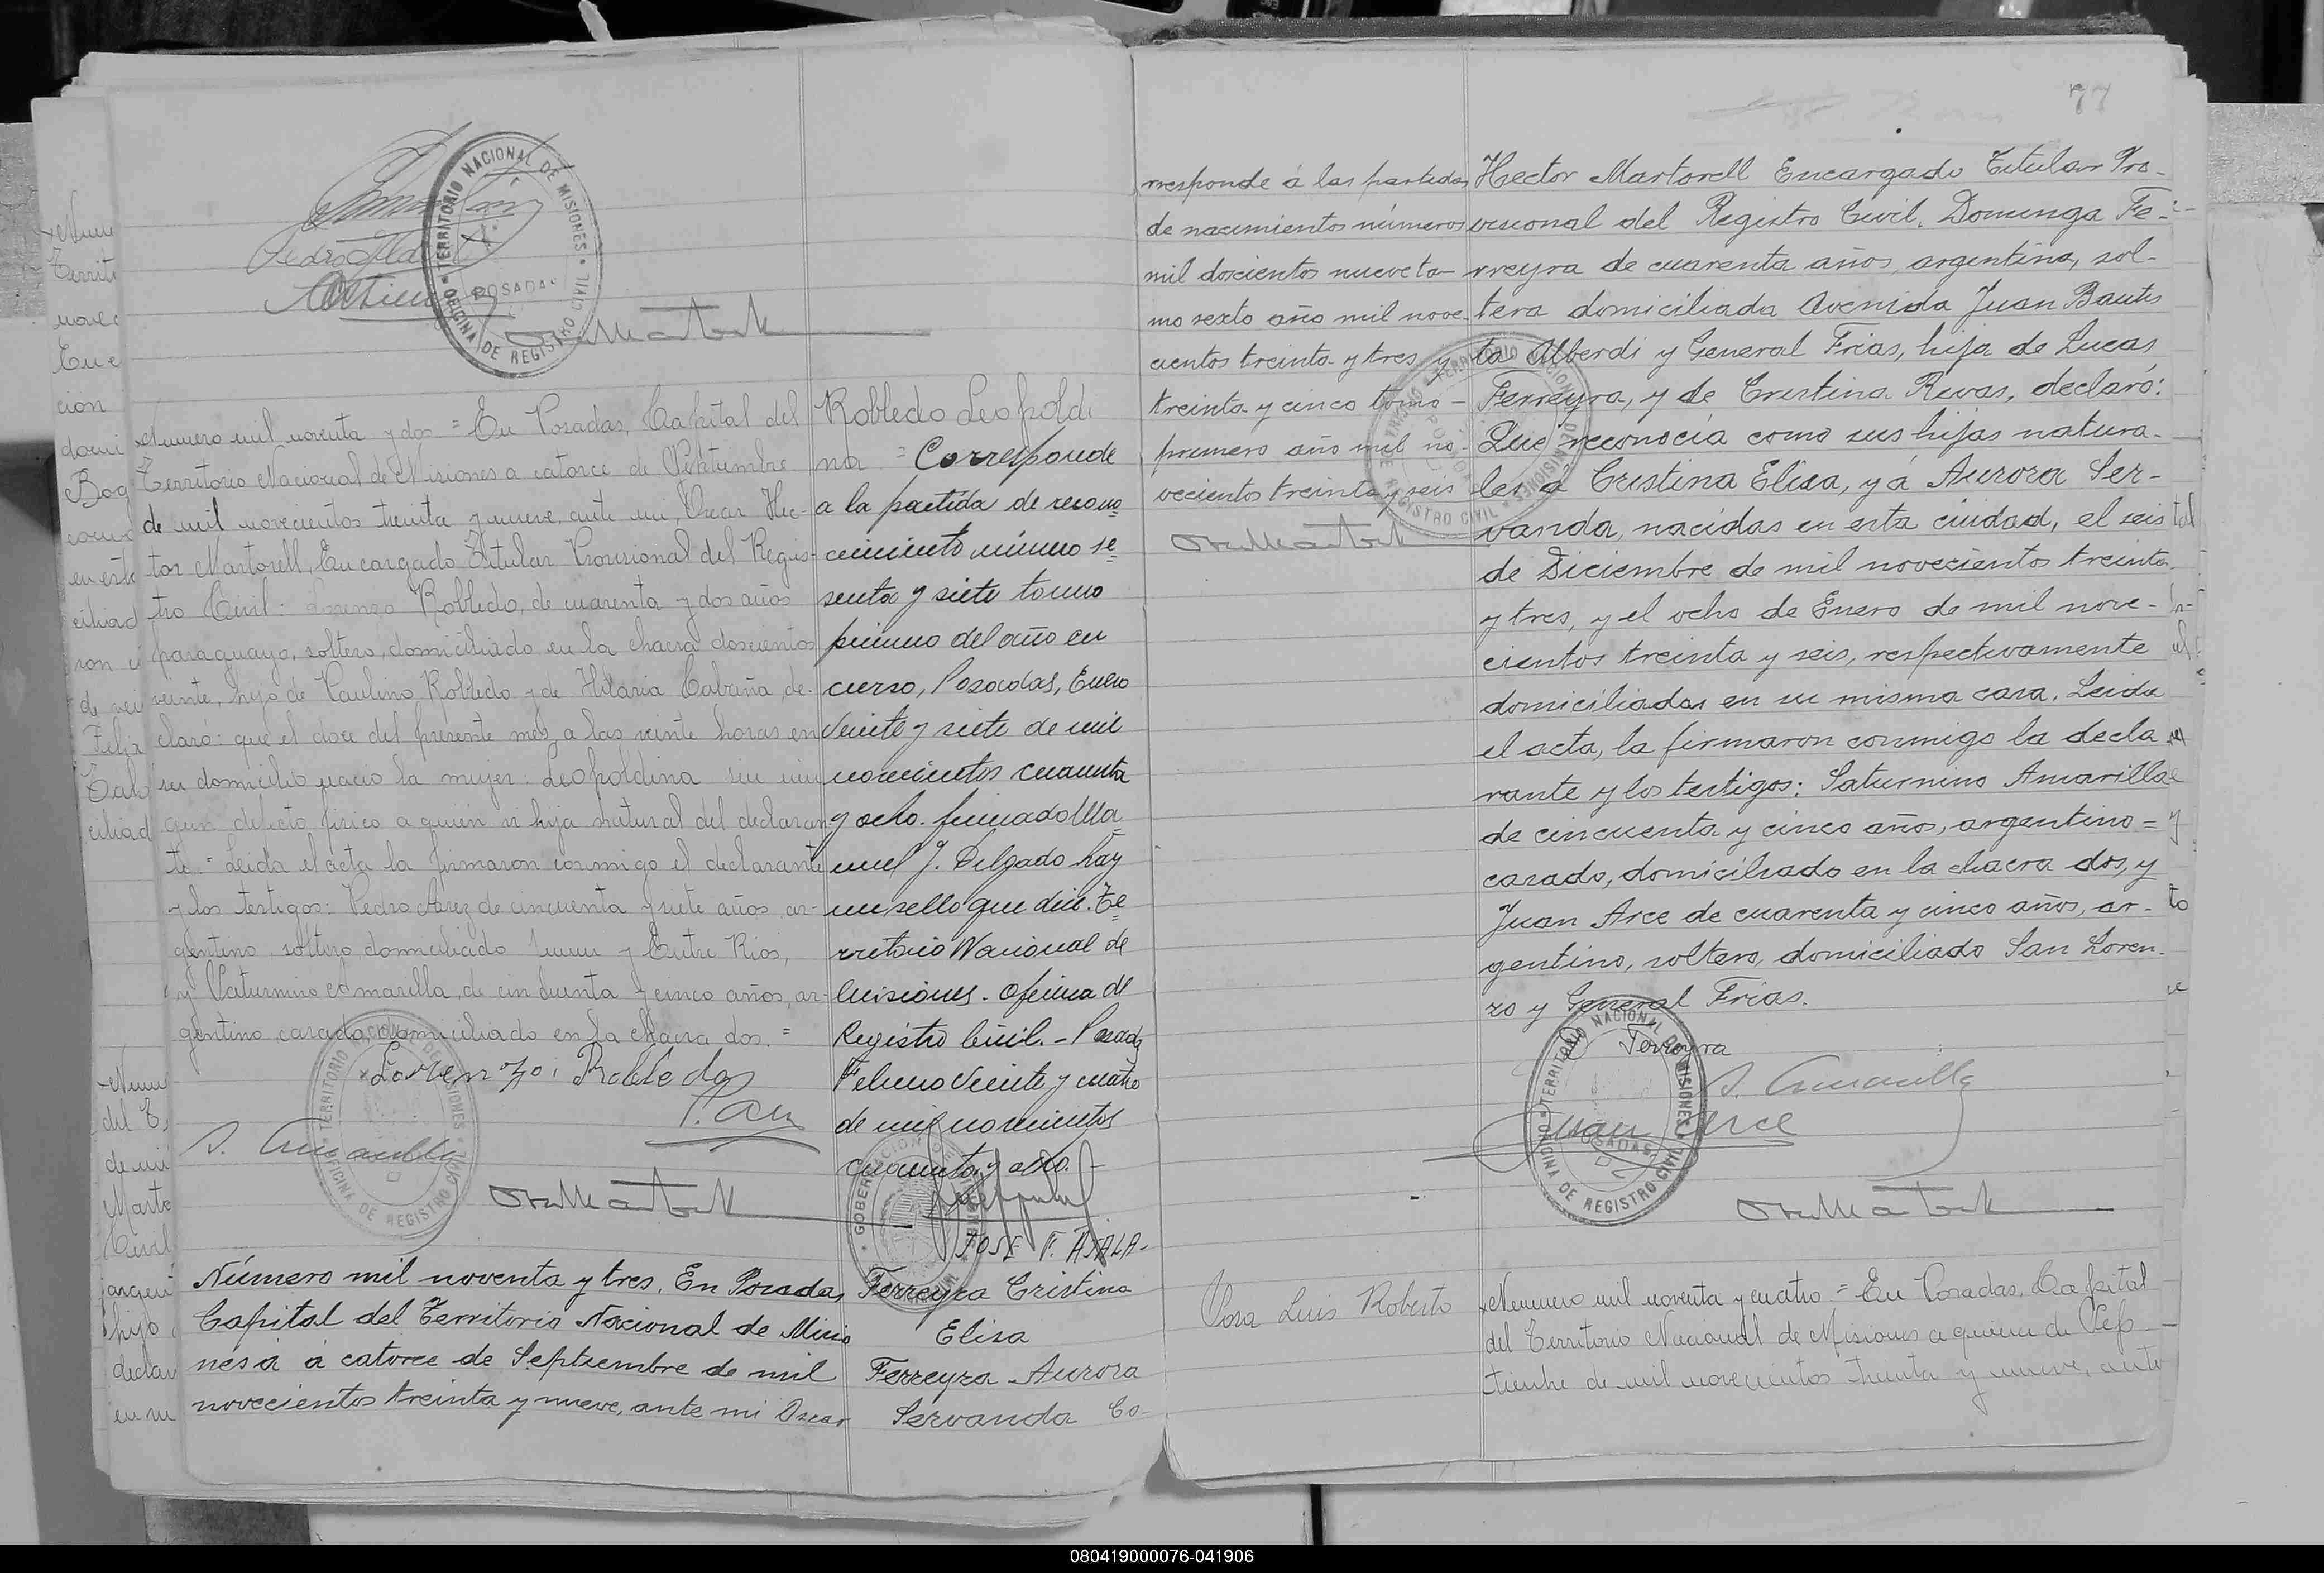 TERRITORIO NACIONAL DE MISIONES
OFICINA DE REGISTRO CIVIL
POSADAS
Numero mil noventa y dos = En Posadas, Capital del
Territorio Nacional de Misiones a catorce de Septiembre
de mil novecientos treinta y nueve, ante mi, Oscar Hec-
tor Martorell, Encargado Titular Provisional del Regis-
tro Civil: Lorenzo Robledo, de cuarenta y dos años
paraguayo, soltero, domiciliado en la chacra doscientos
veinte, hijo de Paulino Robledo y de Hilaria Cabaña, de-
claró: que el doce del presente mes, a las veinte horas en
su domicilio nació la mujer: Leopoldina sin nin
gun defecto fisico a quien hija natural del declaran
te = Leida el acta la firmaron conmigo el declarante
y los testigos: Pedro de cincuenta y siete años, ar-
gentino, soltero, domiciliado y Entre Rios,
y Saturnino Amarilla, de cincuenta y cinco años, ar-
gentino, casado, domiciliado en la chacra dos. =
Lorenzo Robledo
S. Amarilla
Robledo Leopoldi
na = Corresponde
a la partida de recono
cimiento número se
senta y siete tomo
primero del año en
curso, Posadas, Enero
veinte y siete de mil
novecientos cuarenta
y ocho. firmado Ma
nuel J. Delgado hay
un sello que dice. Te
rritorio Nacional de
Misiones. Oficina de
Registro Civil. - Posadas
Febrero veinte y cuatro
de mil novecientos
cuarenta y ocho. -
JOSE F. AYALA-
Número mil noventa y tres. En Posadas,
Capital del Territorio Nacional de Misio
nes á á catorce de Septiembre de mil
novecientos treinta y nueve, ante mi Oscar
Ferreyra Cristina
Elisa
Ferreyra Aurora
Servanda Co-
77
rresponde á las partidas
de nacimientos números
mil doscientos nueve to-
mo sexto año mil nove-
cientos treinta y tres, y
treinta y cinco tomo -
primero año mil no-
vecientos treinta y seis
Hector Martorell Encargado Titular Pro-
visional del Registro Civil. Dominga Fe-
rreyra de cuarenta años, argentina, sol-
tera domiciliada Avenida Juan Bautis
ta Alberdi y General Frias, hija de Lucas
Ferreyra, y de Cristina Rivas, declaró:
Que reconocía como sus hijas natura-
les á Cristina Elisa, y á Aurora Ser-
vanda, nacidas en esta ciudad, el seis
de Diciembre de mil novecientos treinta
y tres, y el ocho de Enero de mil nove-
cientos treinta y seis, respectivamente
domiciliadas en su misma casa. Leida
el acta, la firmaron conmigo la decla
rante y los testigos: Saturnino Amarilla
de cincuenta y cinco años, argentino =
casado, domiciliado en la chacra dos, y
Juan Arce de cuarenta y cinco años, ar-
gentino, soltero, domiciliado San Loren-
zo y General Frias.
D Ferreyra
S. Amarilla
Juan Arce
TERRITORIO NACIONAL DE MISIONES
OFICINA DE REGISTRO CIVIL
POSADAS
Sosa Luis Roberto
Numero mil noventa y cuatro = En Posadas, Capital
del Territorio Nacional de Misiones a quince de Sep-
tiembre de mil novecientos treinta y nueve, ante
080419000076-041906